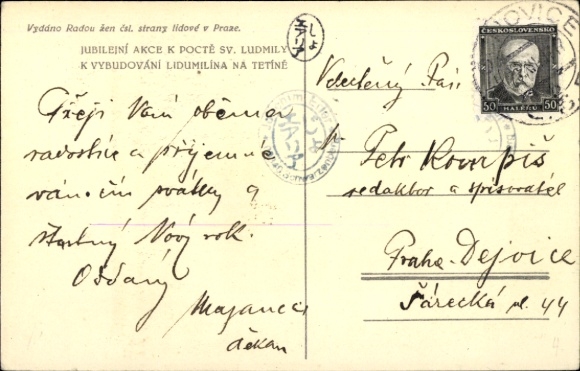 Vydáno Radou žen čsl. strany lidové v Praze.
JUBILEJNÍ AKCE K POCTĚ SV. LUDMILY
K VYBUDOVÁNÍ LIDUMILÍNA NA TETÍNĚ
ČESKOSLOVENSKO
50 HALÉŘŮ 50
Přeji Vám oběma
radostné a příjemné
vánoční svátky a
šťastný Nový rok.
Oddaný
děkan
Vdectěný Pán
Petr
redaktor a spisovatel
Praha-Dejvice
Šárecká ul. 44